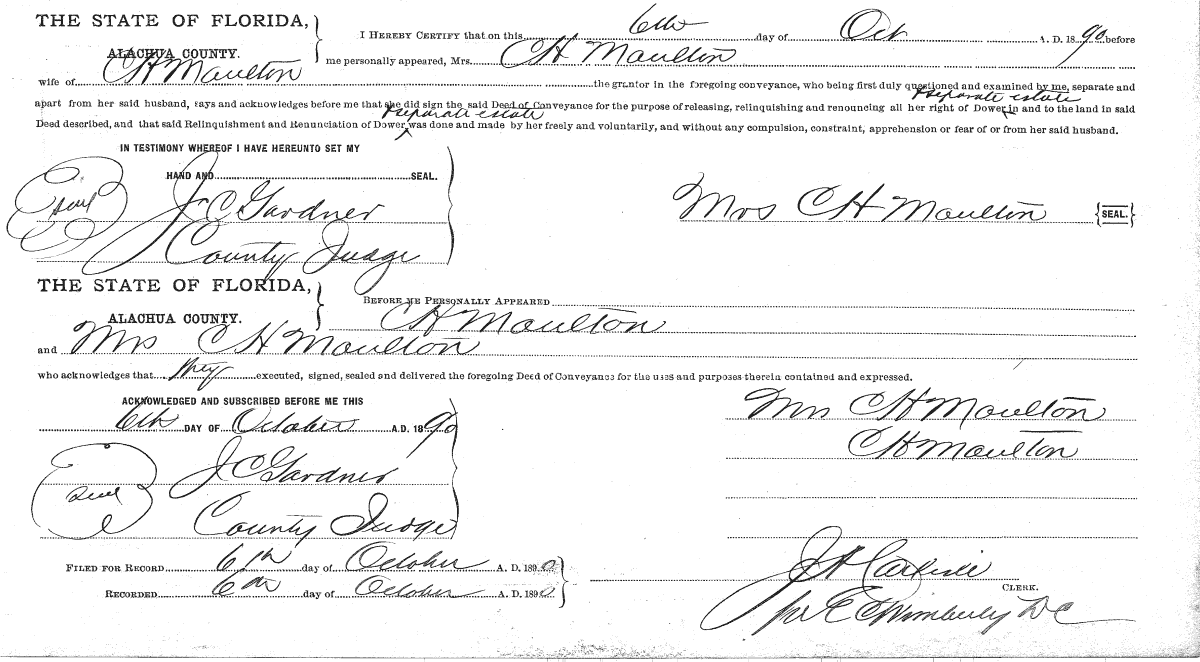 THE STATE OF FLORIDA,
ALACHUA COUNTY.
I HEREBY CERTIFY that on this 6th day of Oct A. D. 1890 before
me personally appeared, Mrs. C H Moulton
wife of C H Moulton the grantor in the foregoing conveyance, who being first duly questioned and examined by me, separate and
& separate estate
apart from her said husband, says and acknowledges before me that she did sign the said Deed of Conveyance for the purpose of releasing, relinquishing and renouncing all her right of Dower in and to the land in said
& separate estate
Deed described, and that said Relinquishment and Renunciation of Dower was done and made by her freely and voluntarily, and without any compulsion, constraint, apprehension or fear of or from her said husband.
IN TESTIMONY WHEREOF I HAVE HEREUNTO SET MY
HAND AND SEAL.
seal J C Gardner
County Judge
Mrs C H Moulton {SEAL.}
THE STATE OF FLORIDA,
ALACHUA COUNTY.
BEFORE ME PERSONALLY APPEARED
C H Moulton
and Mrs C H Moulton
who acknowledges that they executed, signed, sealed and delivered the foregoing Deed of Conveyance for the uses and purposes therein contained and expressed.
ACKNOWLEDGED AND SUBSCRIBED BEFORE ME THIS
6th DAY OF October A.D. 1890
seal J C Gardner
County Judge
Mrs C H Moulton
C H Moulton
FILED FOR RECORD 6th day of October A. D. 1890
RECORDED 6th day of October A. D. 1890
J A Carlisle
CLERK.
per E C Wimberly D C